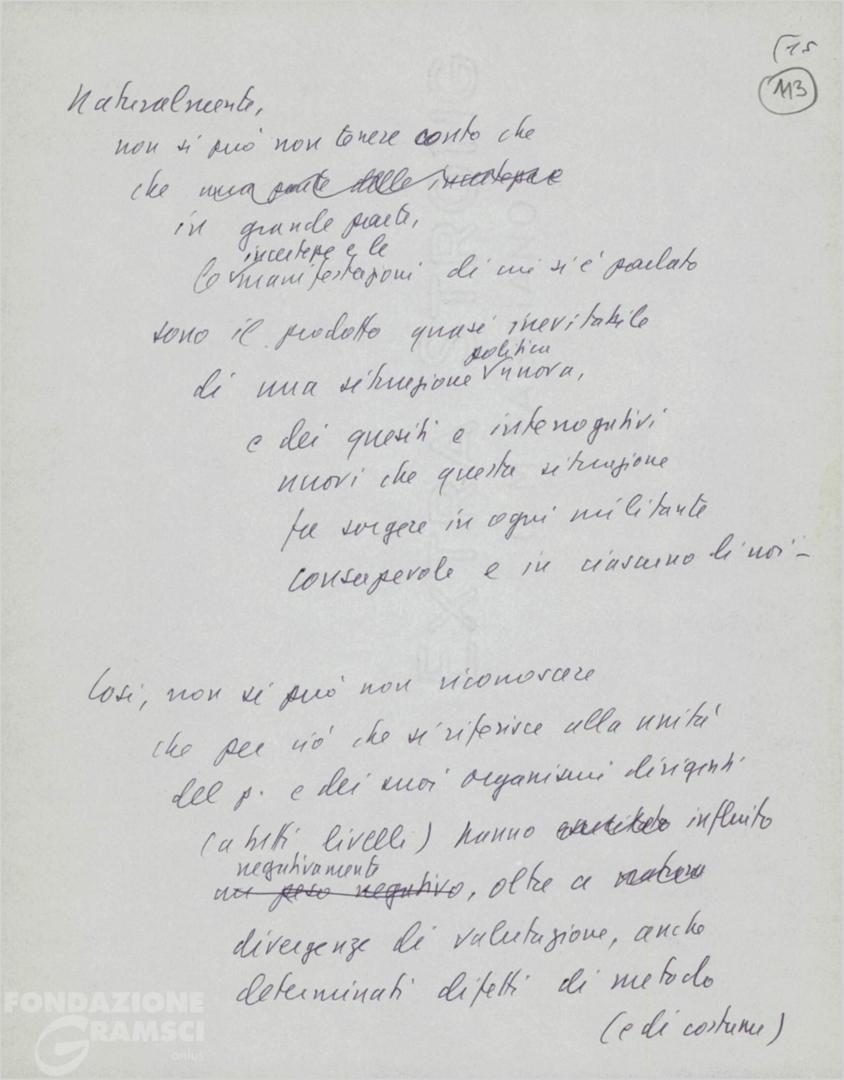 15
113
Naturalmente,
non si può non tenere conto che
che una parte delle incertezze
in grande parte,
incertezze e le
le manifestazioni di cui si è parlato
sono il prodotto quasi inevitabile
politica
di una situazione nuova,
e dei quesiti e interrogativi
nuovi che questa situazione
fa sorgere in ogni militante
consapevole e in ciascuno di noi –
Così, non si può non riconoscere
che per ciò che si riferisce alla unità
del p. e dei suoi organismi dirigenti
(a tutti livelli) hanno influito
negativamente
un peso negativo, oltre a
divergenze di valutazione, anche
determinati difetti di metodo
(e di costume)
FONDAZIONE
GRAMSCI
onlus
EXTRA STRONG